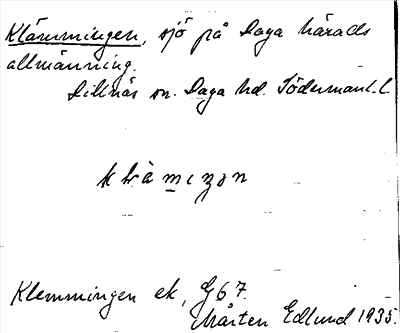 Klämmingen, sjö på Daga härads
allmänning.
Dillnäs sn. Daga hd. Södermanl. l.
klämızən
Klemmingen ek, G67.
Mårten Edlund 1935.